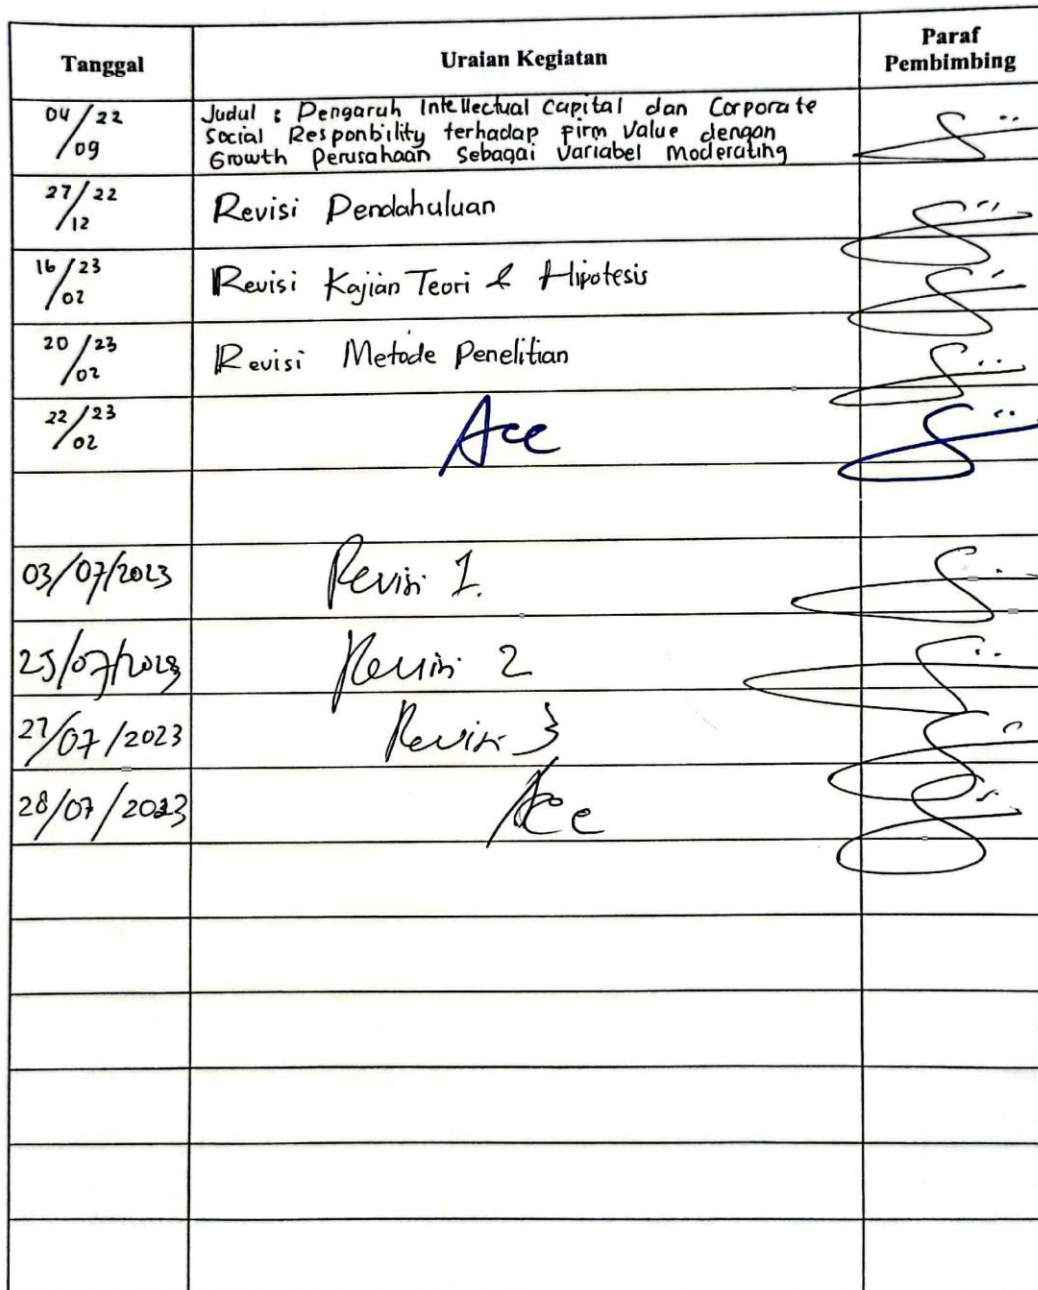 Tanggal
Uraian Kegiatan
Paraf
Pembimbing
04/22
/09
Judul : Pengaruh Intellectual Capital dan Corporate
Social Responbility terhadap Firm Value dengan
Growth Perusahaan Sebagai Variabel Moderating
27/22
/12
Revisi Pendahuluan
16/23
/02
Revisi Kajian Teori & Hipotesis
20/23
/02
Revisi Metode Penelitian
22/23
/02
Acc
03/07/2023
Revisi 1.
25/07/2023
Revisi 2
27/07/2023
Revisi 3
28/07/2023
Acc